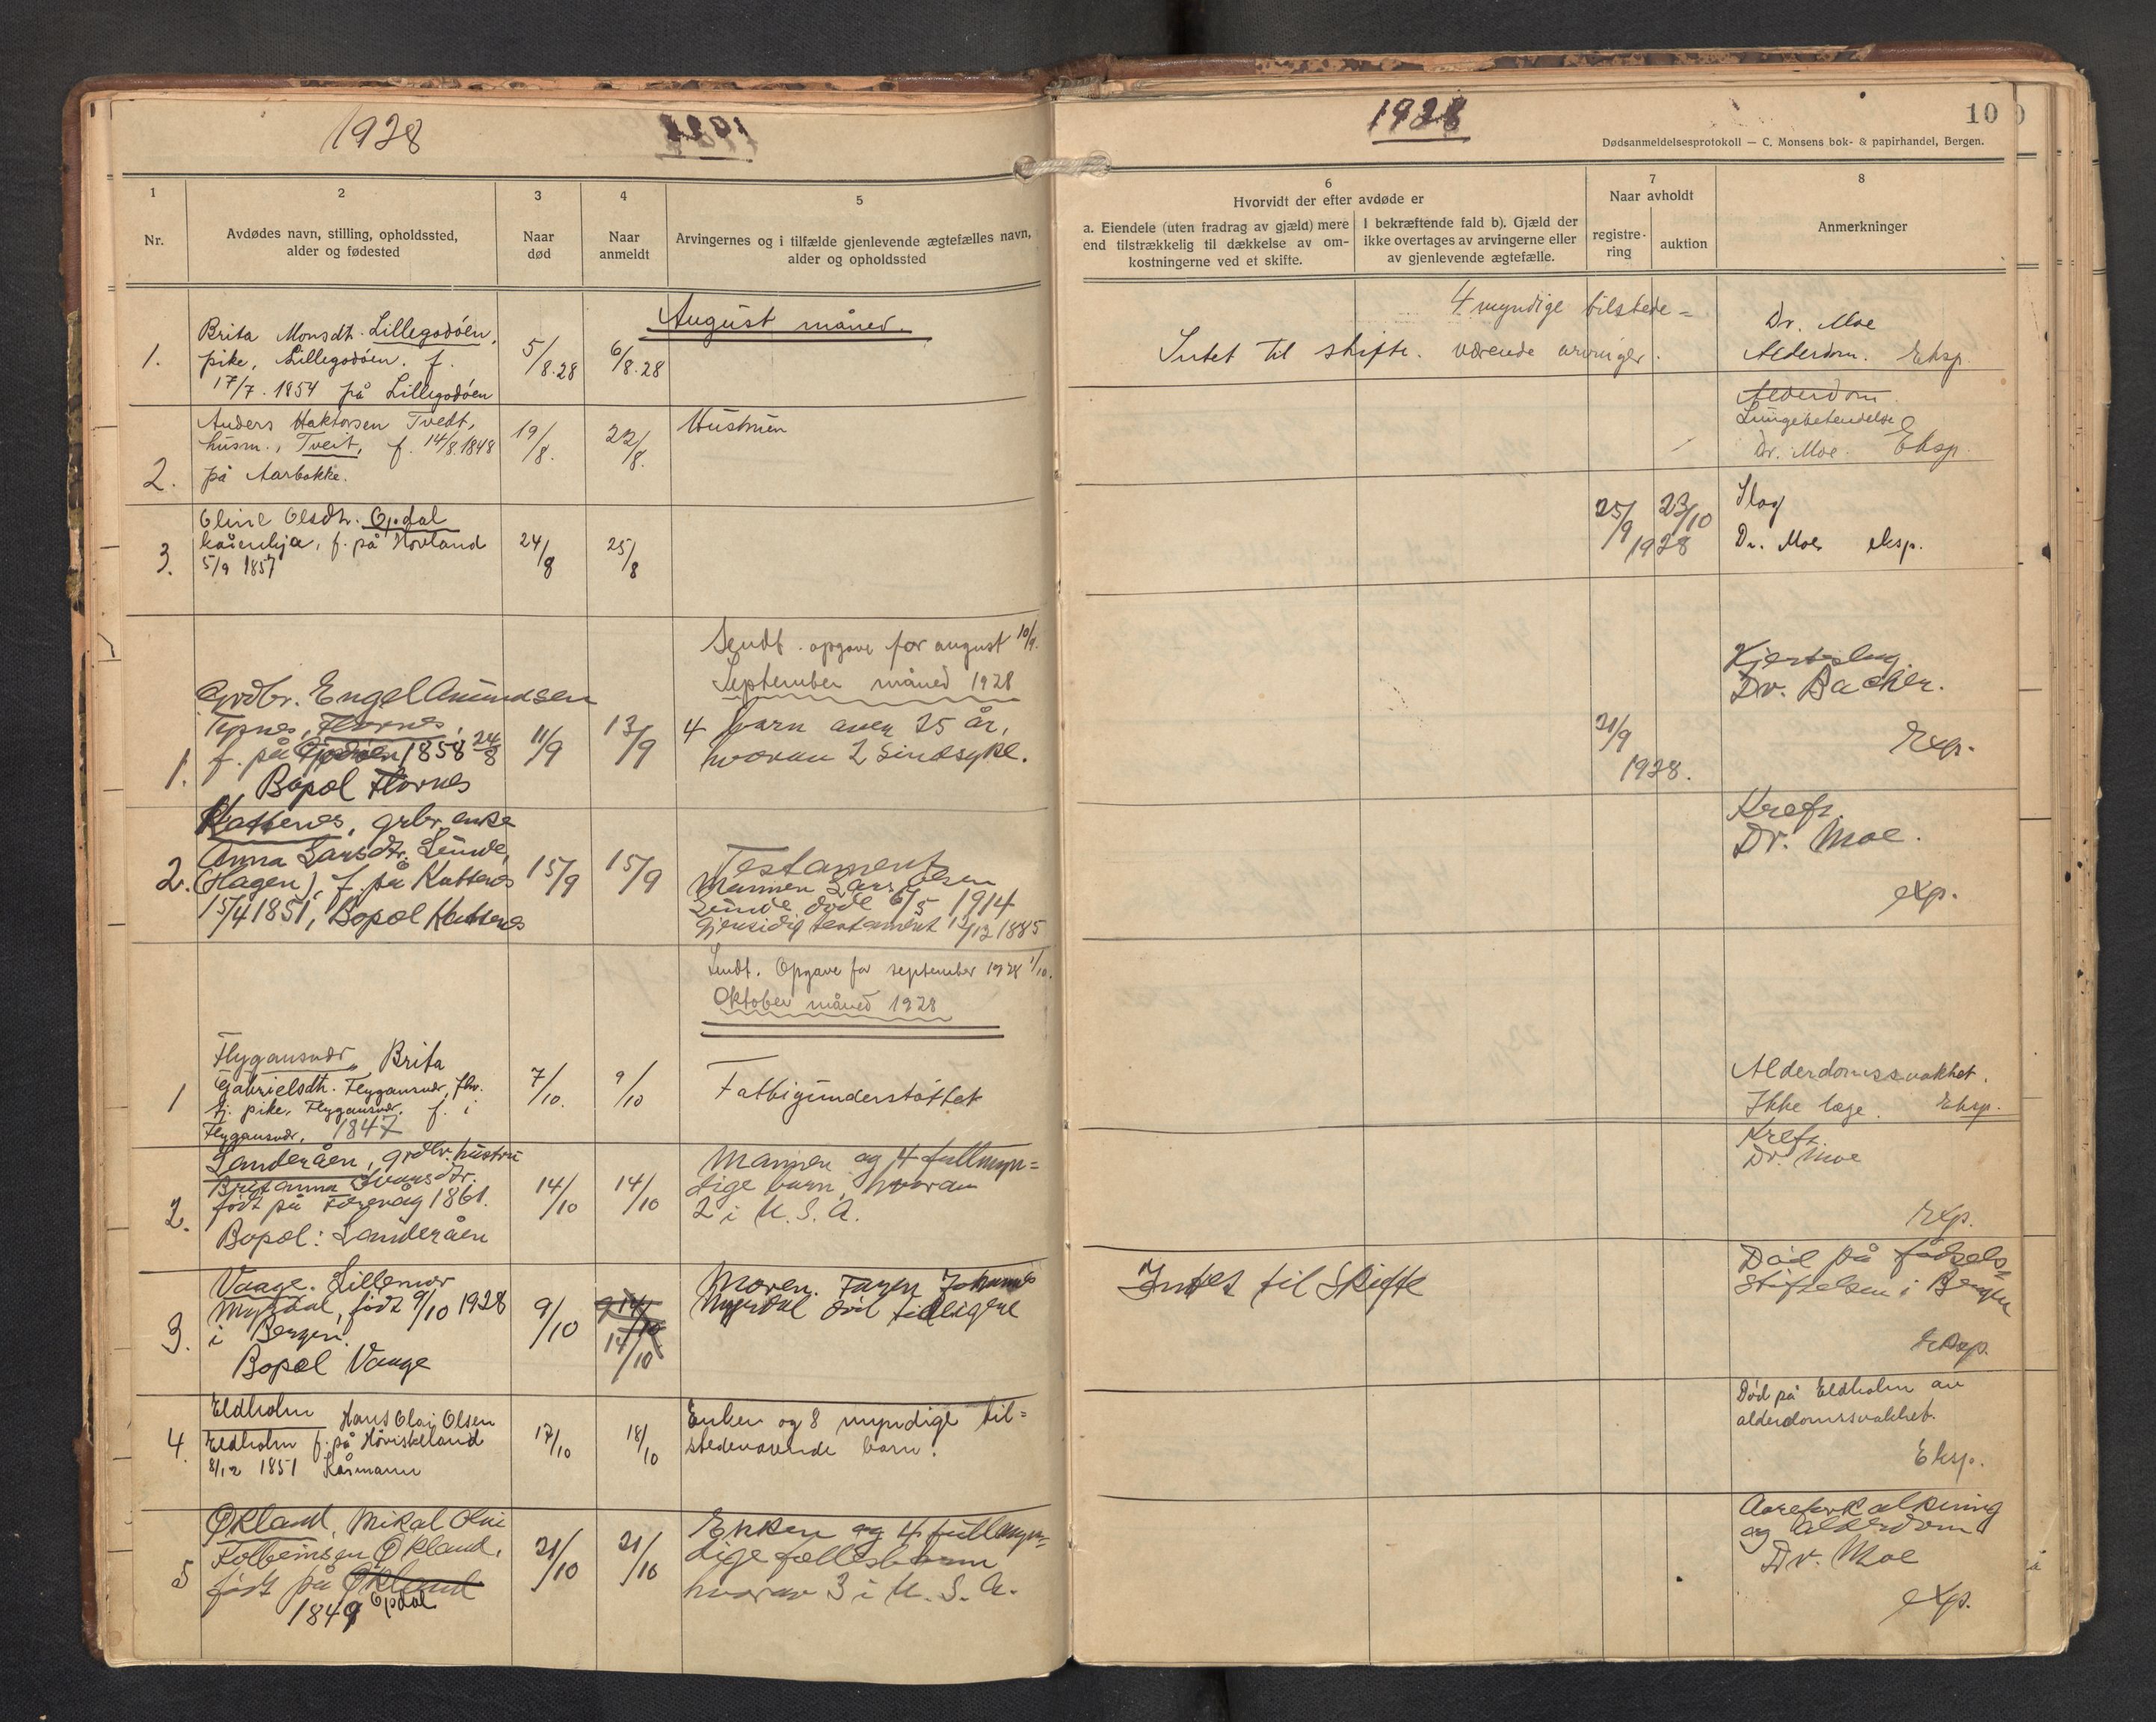 1928
1928
10
Dødsanmeldelsesprotokoll — C. Monsens bok- & papirhandel, Bergen.
1
2
3
4
5
6
7
8
Nr.
Avdødes navn, stilling, opholdssted,
alder og fødested
Naar
død
Naar
anmeldt
Arvingernes og i tilfælde gjenlevende ægtefælles navn,
alder og opholdssted
Hvorvidt der efter avdøde er
a. Eiendele (uten fradrag av gjæld) mere
end tilstrækkelig til dækkelse av om-
kostningerne ved et skifte.
I bekræftende fald b). Gjæld der
ikke overtages av arvingerne eller
av gjenlevende ægtefælle.
Naar avholdt
registre-
ring
auktion
Anmerkninger
August måned.
1.
Brita Monsdt. Lillegodøen,
pike, Lillegodøen. f.
17/7. 1854 på Lillegodøen
5/8.28
6/8.28
Intet til skifte.
4 myndige tilstede-
værende arvinger.
Dr. Moe
Alderdom. Eksp.
2.
Anders Haktorsen Tvedt,
husm., Tveit, f. 14/8.1848
på Aarbakke.
19/8.
22/8.
Hustruen
Alderdom.
Lungebetendelse
Dr. Moe. Eksp.
3.
Oline Olsdtr. Opdal
kårenkja, f. på Hovland
5/9 1857
24/8
25/8
25/9
23/10
1928
Slag
Dr. Moe eksp.
Sendt opgave for august 10/9.
September måned 1928
1.
Grdbr. Engel Amundsen
f. på 1858 24/8
Bopæl Flornes
11/9
13/9
4 barn over 25 år,
hvorav 2 sindsyke.
21/9
1928.
Dr. Backer.
Exp.
2.
Kattenes, grbr. enke
Anna Larsdtr. Lunde,
(Hagen), f. på Kattenes
15/4 1851, Bopæl Kattenes
15/9
15/9
Testament
Mannen Lars Olsen
Lunde døde 6/5 1914
Gjensidig testament 12/12 1885
Kreft
Dr. Moe.
exp.
Sendt. Opgave for september 1928 1/10.
Oktober måned 1928
1
Flygansvær, Brita
Gabrielsdtr. Flygansvær, fhv.
tj. pike, Flygansvær. f. i
Flygansvær. 1847
7/10.
9/10
Fattigunderstøttet
Alderdomssvakhet.
Ikke læge. Eksp.
2.
Landeråen, grdbr. hustru
Britanna Ivarsdtr.
født på Færevåg 1861.
Bopæl: Landeråen
14/10
14/10
Mannen og 4 fullmyn=
dige barn, hvorav
2 i U. S. A.
Kreft.
Dr. Moe
Exp.
3.
Vaage. Lillemor
Myrdal, født 9/10 1928
i Bergen.
Bopæl Vaage
9/10
14/10
Moren. Faren Johannes
Myrdal død tidligere
Intet til Skifte
Død på fødsels=
stiftelsen i Bergen
Eksp.
4.
Eldholm Hans Olai Olsen
Eldholm f. på Høviskeland
8/12 1851 Kårmann
17/10
18/10
Enken og 8 myndige til=
stedeværende barn.
Død på Eldholm av
alderdomssvakhet.
Eksp.
5
Økland, Mikal Olai
Kolbeinsen Økland,
født på Økland
Opdal
1849
21/10
21/10
Enken og 4 fullmyn=
dige fællesbarn
hvorav 3 i U. S. A.
Aareforkalkning
og Alderdom
Dr. Moe
exp.